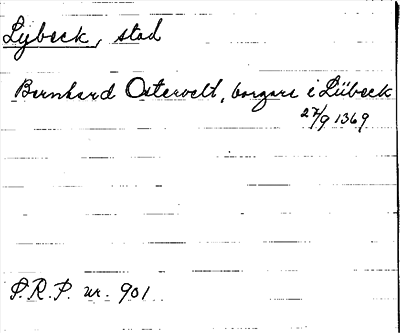 Lybeck, stad
Bernhard Ostervelt, borgare i Lübeck
27/9 1369
S.R.P. nr. 901